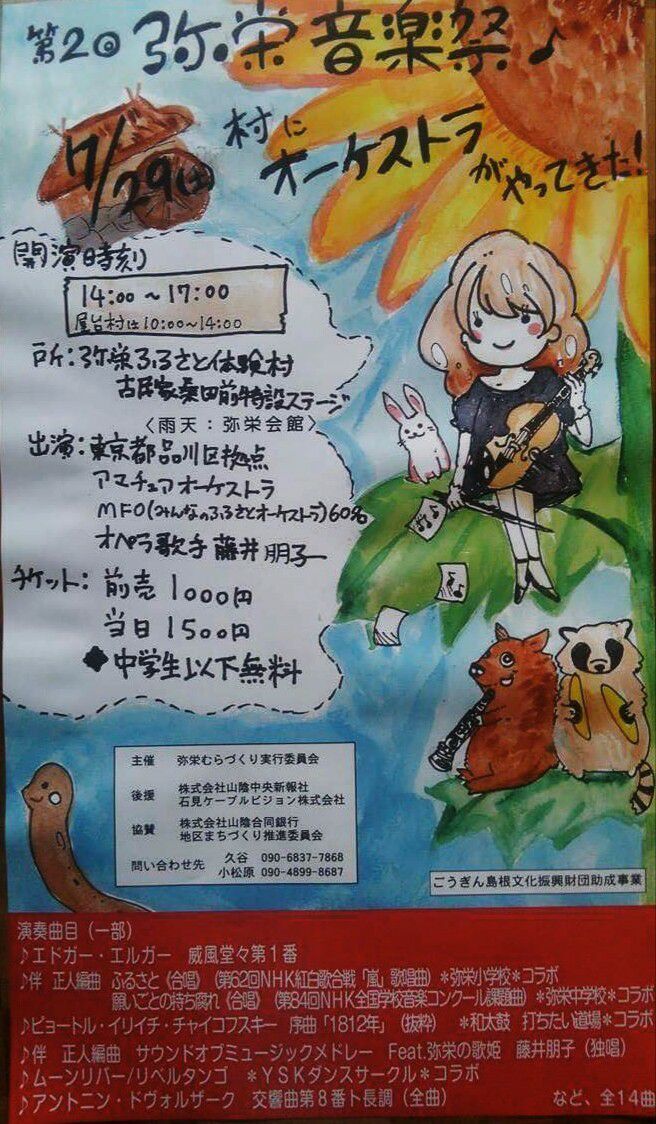 第2回 弥栄音楽祭♪
7/29(土)
村に
オーケストラ
がやってきた!
開演時刻
14:00～17:00
屋台村は10:00～14:00
戸所:弥栄ふるさと体験村
古民家桑田前特設ステージ
〈雨天:弥栄会館〉
出演:東京都品川区拠点
アマチュアオーケストラ
MFO(みんなのふるさとオーケストラ)60名
オペラ歌手 藤井朋子
チケット: 前売 1000円
当日 1500円
◆中学生以下無料
主催 弥栄むらづくり実行委員会
後援 株式会社山陰中央新報社
石見ケーブルビジョン株式会社
協賛 株式会社山陰合同銀行
地区まちづくり推進委員会
問い合わせ先 久谷 090-6837-7868
小松原 090-4899-8687
ごうぎん島根文化振興財団助成事業
演奏曲目(一部)
♪エドガー・エルガー 威風堂々第1番
♪伴 正人編曲 ふるさと《合唱》(第62回NHK紅白歌合戦「嵐」歌唱曲)*弥栄小学校*コラボ
願いごとの持ち腐れ《合唱》(第84回NHK全国学校音楽コンクール課題曲)*弥栄中学校*コラボ
♪ピョートル・イリイチ・チャイコフスキー 序曲「1812年」(抜粋) *和太鼓 打ちたい道場*コラボ
♪伴 正人編曲 サウンドオブミュージックメドレー Feat.弥栄の歌姫 藤井朋子(独唱)
♪ムーンリバー/リベルタンゴ *YSKダンスサークル*コラボ
♪アントニン・ドヴォルザーク 交響曲第8番ト長調(全曲) など、全14曲